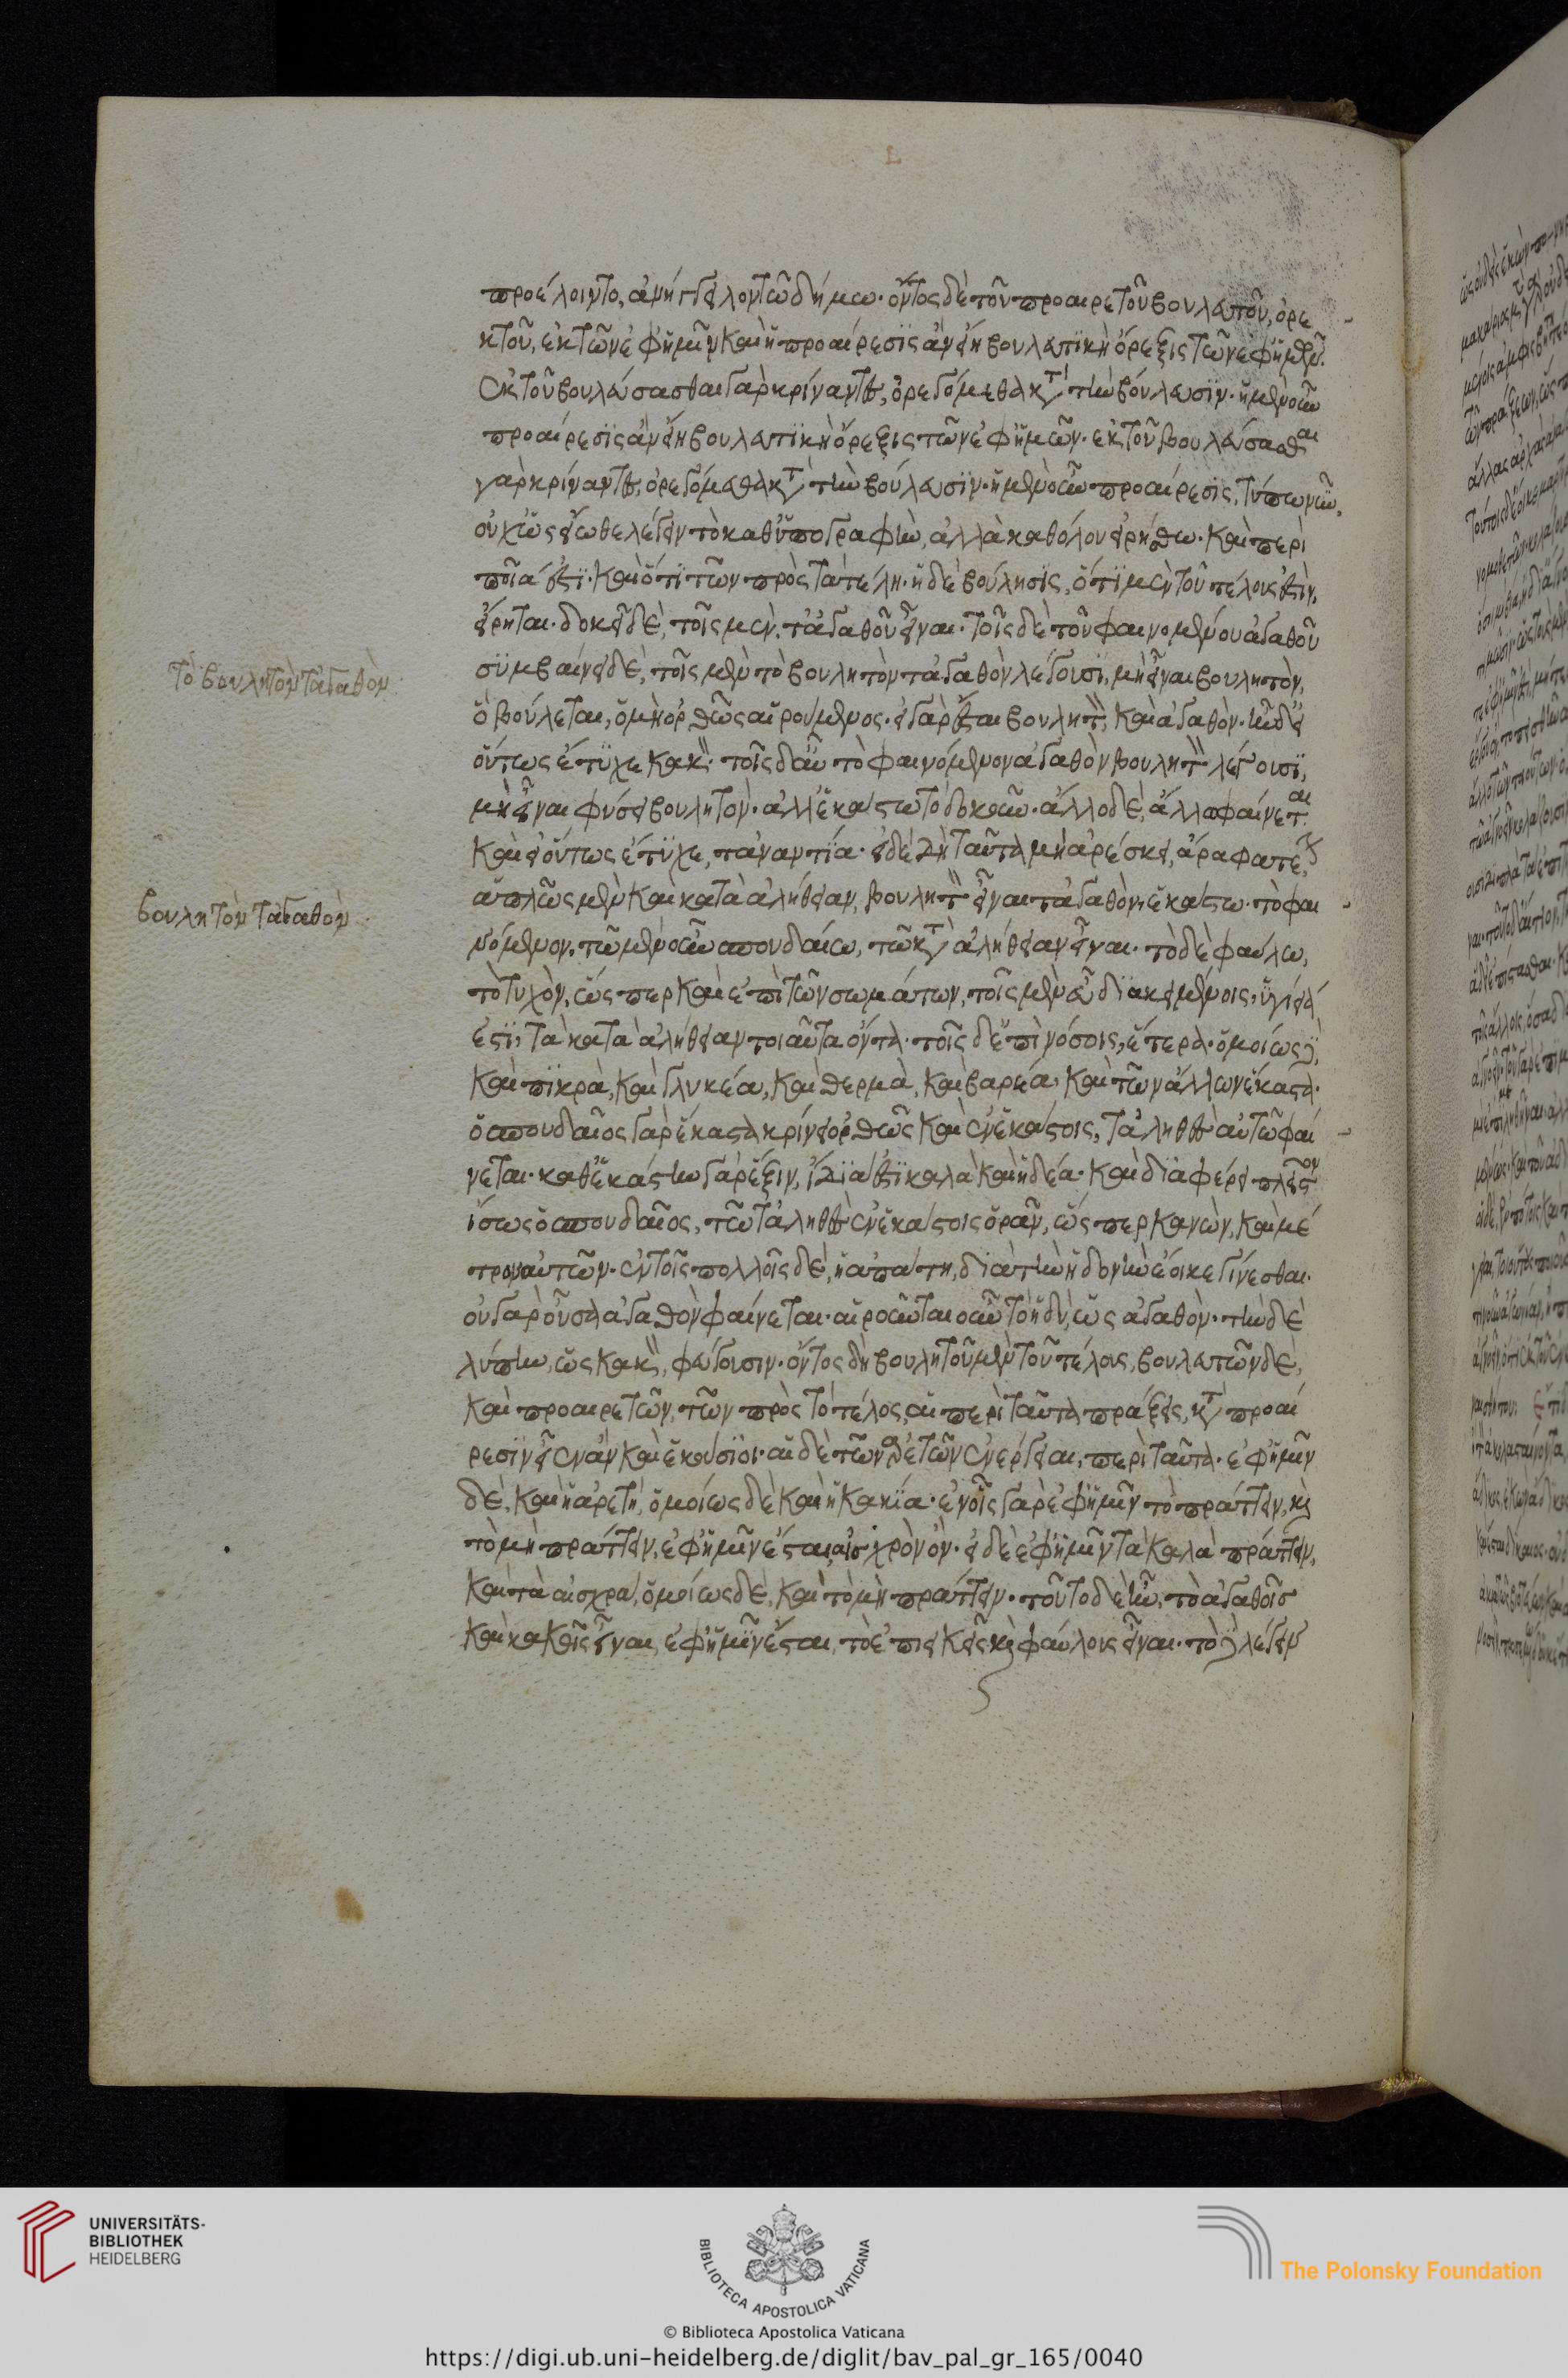 προέλοιντο, ἀνήγγελον τῶ δήμω· ὄντος δὲ τοῦ προαιρετοῦ βουλευτοῦ, ὀρε
κτοῦ, ἐκ τῶν ἐφ' ἡμῖν καὶ ἡ προαίρεσις ἂν εἴη βουλευτικὴ ὄρεξις τῶν ἐφ' ἡμῖν.
ἐκ τοῦ βουλεύσασθαι γὰρ κρίναντες, ὀρεγόμεθα κατὰ τὴν βούλευσιν. ἡ μὲν οὖν
προαίρεσις ἂν εἴη βουλευτικὴ ὄρεξις τῶν ἐφ' ἡμῶν. ἐκ τοῦ βουλεύσασθαι
γὰρ κρίναντες, ὀρεγόμεθα κατὰ τὴν βούλευσιν· ἡ μὲν οὖν προαίρεσις, τύπω
οὐχ ὡς εἴωθε λέγειν τὸ καθ' ὑπογραφὴν, ἀλλὰ καθόλου εἰρήσθω. καὶ περὶ
ποῖά ἐστι· καὶ ὅτι τῶν πρὸς τὰ τέλη· ἡ δὲ βούλησις, ὅτι μὲν τοῦ τέλους ἐστὶν,
εἴρηται· δοκεῖ δὲ, τοῖς μὲν, τἀγαθοῦ εἶναι· τοῖς δὲ τοῦ φαινομένου ἀγαθοῦ
συμβαίνει δὲ, τοῖς μὲν τὸ βουλητὸν τἀγαθὸν λέγουσι, μὴ εἶναι βουλητὸν,
Τὸ βουλητὸν τἀγαθὸν
ὃ βούλεται, ὁ μὴ ὀρθῶς αἱρούμενος· εἰ γὰρ ἔσται βουλητὸν, καὶ ἀγαθὸν· ἦν δ' εἰ
οὕτως ἔτυχε κακὸν· τοῖς δ' αὖ τὸ φαινόμενον ἀγαθὸν βουλητὸν λέγουσι,
μὴ εἶναι φύσει βουλητὸν· ἀλλ' ἑκάστω τὸ δοκοῦν· ἄλλο δὲ, ἄλλω φαίνεται
καὶ εἰ οὕτως ἔτυχε, τἀναντία· εἰ δὲ δὴ ταῦτα μὴ ἀρέσκει, ἆρα φατέον
ἁπλῶς μὲν καὶ κατὰ ἀλήθειαν, βουλητὸν εἶναι τἀγαθὸν, ἑκάστω· τὸ φαι
βουλητὸν τἀγαθὸν
νόμενον. τῶ μὲν οὖν σπουδαίω, τῶ κατὰ ἀλήθειαν εἶναι· τὸ δὲ φαύλω,
τὸ τυχὸν, ὥσπερ καὶ ἐπὶ τῶν σωμάτων, τοῖς μὲν εὖ διακειμένοις, ὑγιεινά
ἐστι, τὰ κατὰ ἀλήθειαν τοιαῦτα ὄντα· τοῖς δ' ἐπινόσοις, ἕτερα· ὁμοίως δὲ,
καὶ πικρὰ, καὶ γλυκέα, καὶ θερμὰ, καὶ βαρέα, καὶ τῶν ἄλλων ἕκαστα·
ὁ σπουδαῖος γὰρ ἕκαστα κρίνει ὀρθῶς καὶ ἐν ἑκάστοις, τἀληθὲς αὐτῶ φαί
νεται· καθ' ἑκάστην γὰρ ἕξιν, ἴδια ἐστι καλὰ καὶ ἡδέα· καὶ διαφέρει πλεῖστον
ἴσως ὁ σπουδαῖος, τῶ τἀληθὲς ἐν ἑκάστοις ὁρᾶν, ὥσπερ κανὼν, καὶ μέ
τρον αὐτῶν· ἐν τοῖς πολλοῖς δὲ, ἡ ἀπάτη, διὰ τὴν ἡδονὴν ἔοικε γίνεσθαι·
οὐ γὰρ οὖσα ἀγαθὸν φαίνεται· αἱροῦνται οὖν τὸ ἡδὺ, ὡς ἀγαθὸν· τὴν δὲ
λύπην, ὡς κακὸν, φεύγουσιν· ὄντος δὴ βουλητοῦ μὲν τοῦ τέλους, βουλευτῶν δὲ,
καὶ προαιρετῶν, τῶν πρὸς τὸ τέλος, αἱ περὶ ταῦτα πράξεις, κατὰ προαί
ρεσιν εἶεν ἂν καὶ ἑκούσιοι· αἱ δὲ τῶν ἀρετῶν ἐνέργειαι, περὶ ταῦτα· ἐφ' ἡμῖν
δὲ, καὶ ἡ ἀρετὴ, ὁμοίως δὲ καὶ ἡ κακία· ἐν οἷς γὰρ ἐφ' ἡμῖν τὸ πράττειν, καὶ
τὸ μὴ πράττειν, ἐφ' ἡμῖν ἔσται, αἰσχρὸν ὄν· εἰ δὲ ἐφ' ἡμῖν τὰ καλὰ πράττειν,
καὶ τὰ αἰσχρὰ, ὁμοίως δὲ, καὶ τὸ μὴ πράττειν· τοῦτο δὲ ἦν, τὸ ἀγαθοῖς
καὶ κακοῖς εἶναι, ἐφ' ἡμῖν ἔσται, τὸ ἐπιεικεῖς καὶ φαύλοις εἶναι· τὸ δὲ λέγειν
UNIVERSITÄTS-
BIBLIOTHEK
HEIDELBERG
BIBLIOTECA APOSTOLICA VATICANA
The Polonsky Foundation
© Biblioteca Apostolica Vaticana
https://digi.ub.uni-heidelberg.de/diglit/bav_pal_gr_165/0040